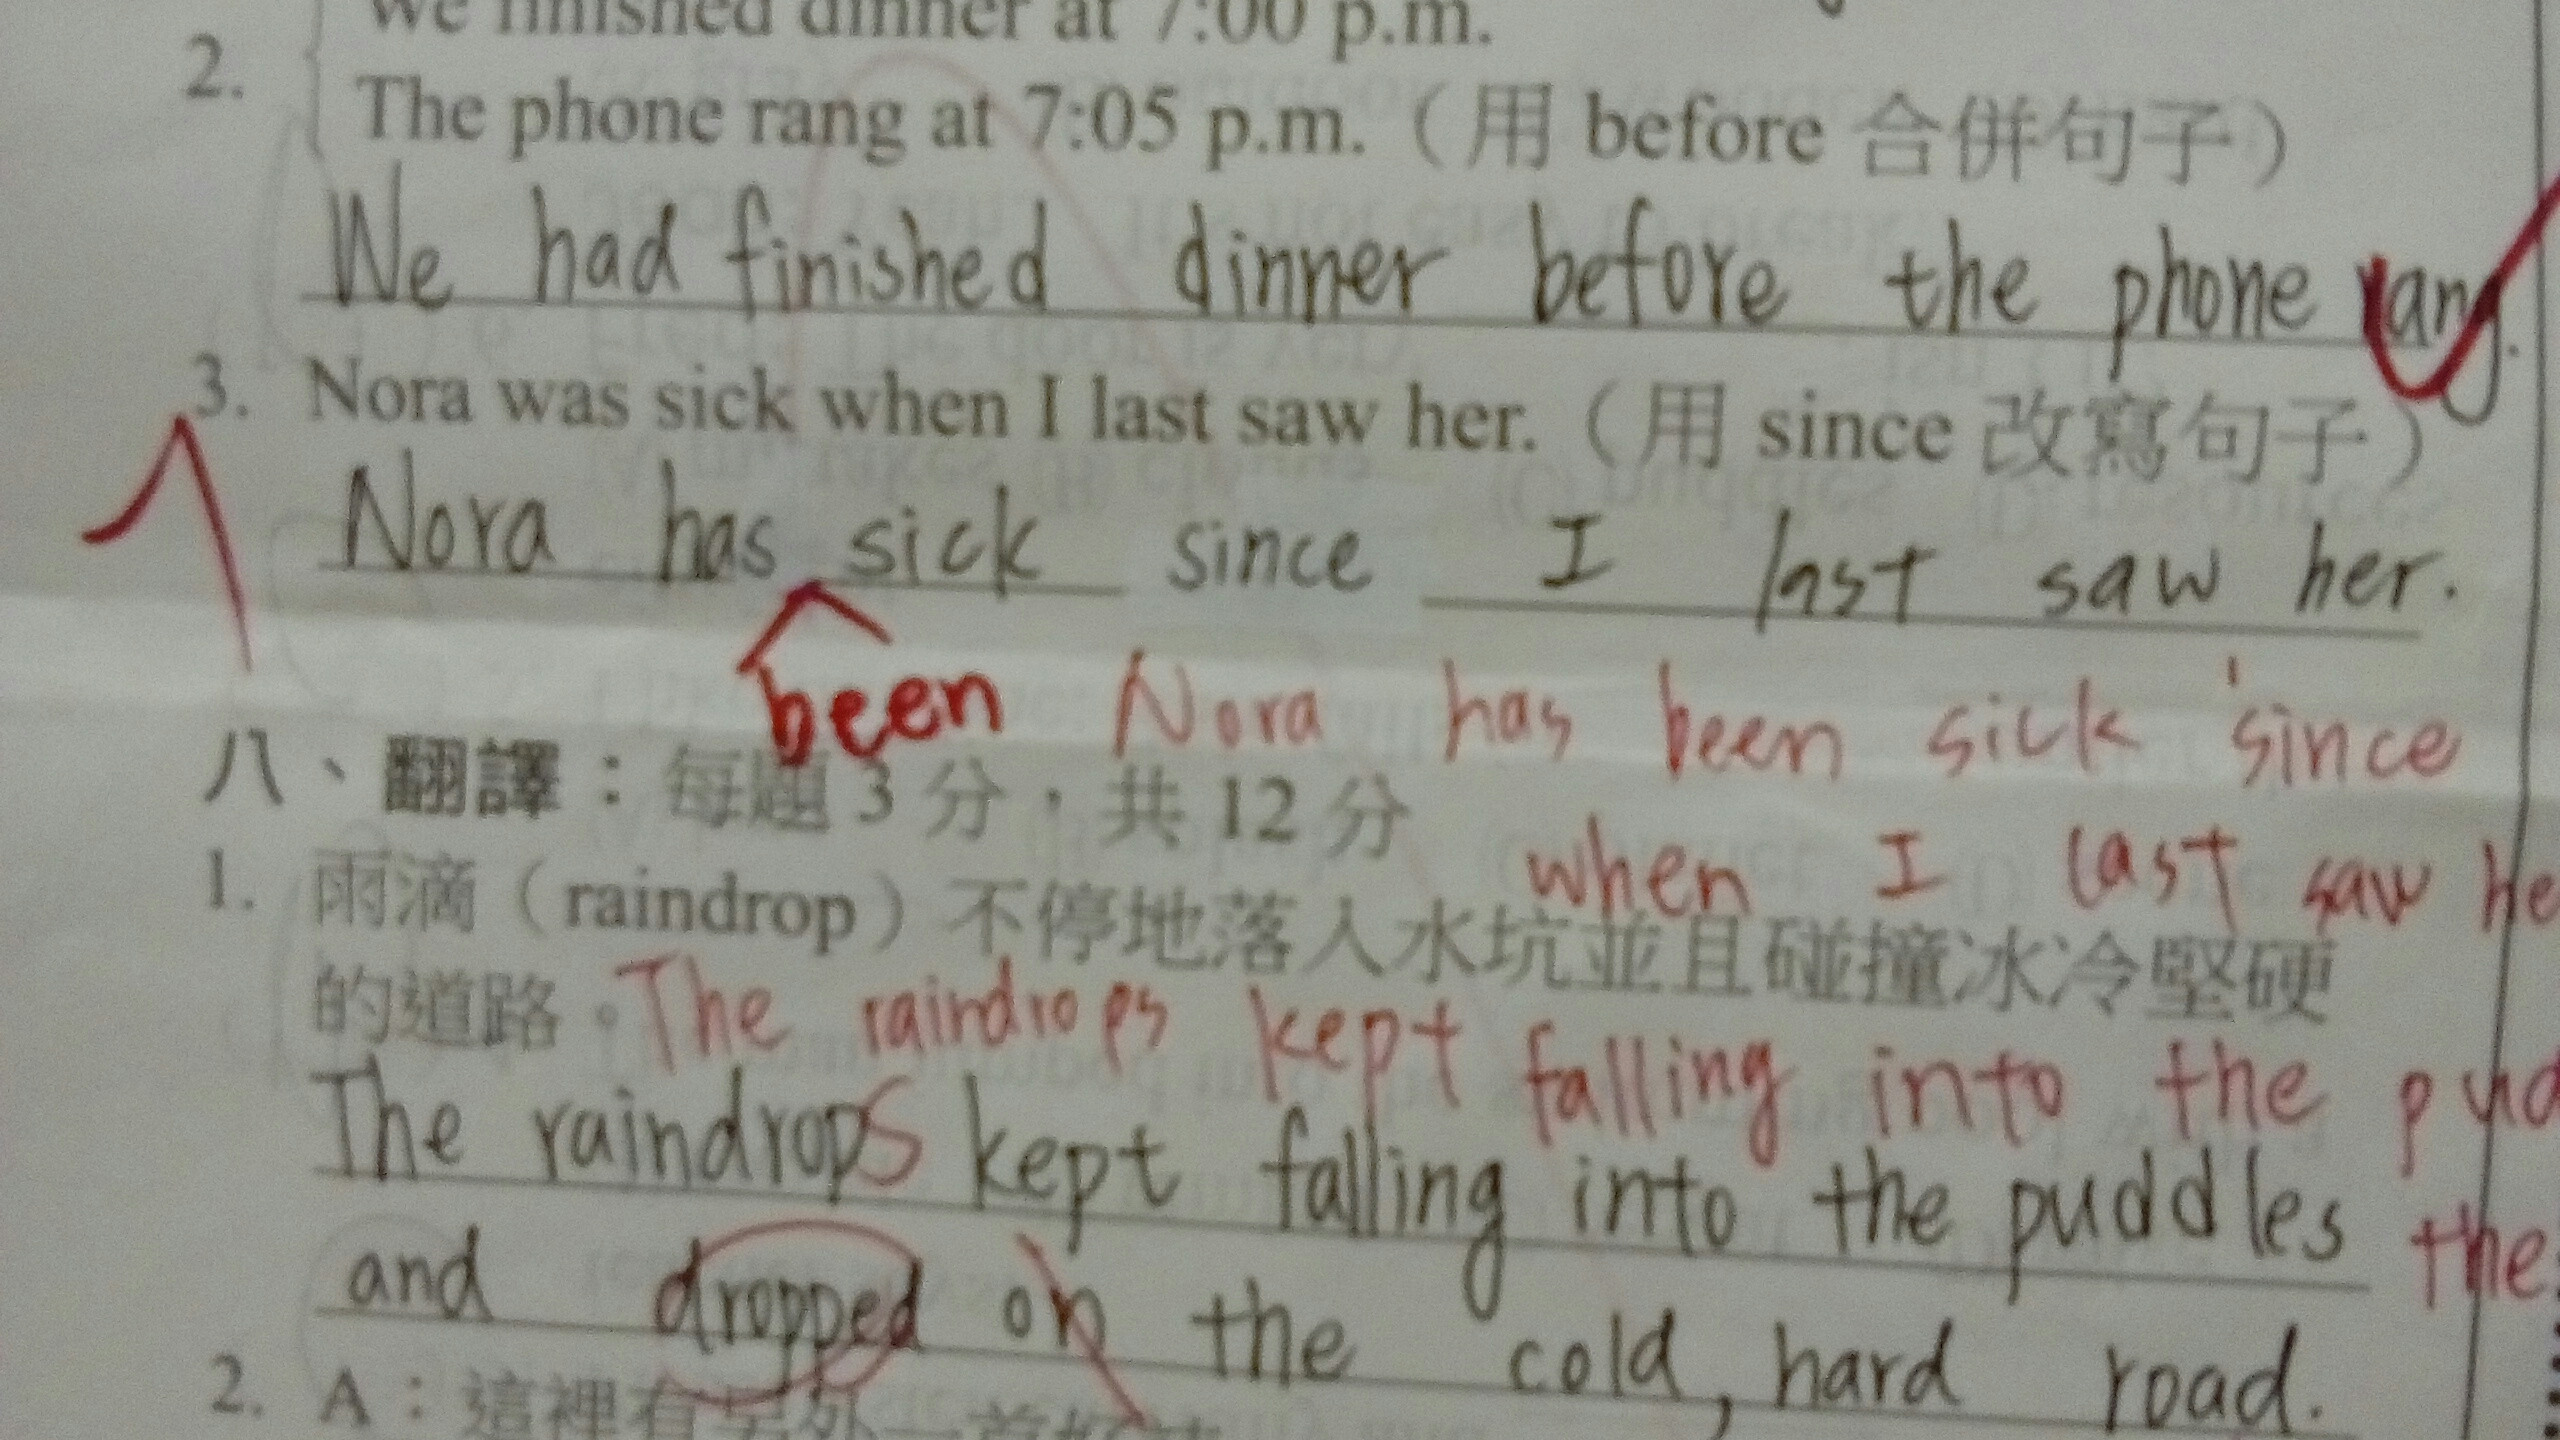 We finished dinner at 7:00 p.m.
2.
The phone rang at 7:05 p.m.（用 before 合併句子）
We had finished dinner before the phone rang.
3. Nora was sick when I last saw her.（用 since 改寫句子）
Nora has sick since I last saw her.
been Nora has been sick since
八、翻譯：每題 3 分，共 12 分
when I last saw he
1. 雨滴（raindrop）不停地落入水坑並且碰撞冰冷堅硬
的道路。The raindrops kept falling into the pud
The raindrops kept falling into the puddles
the
and dropped on the cold, hard road.
2. A：這裡有另外一首